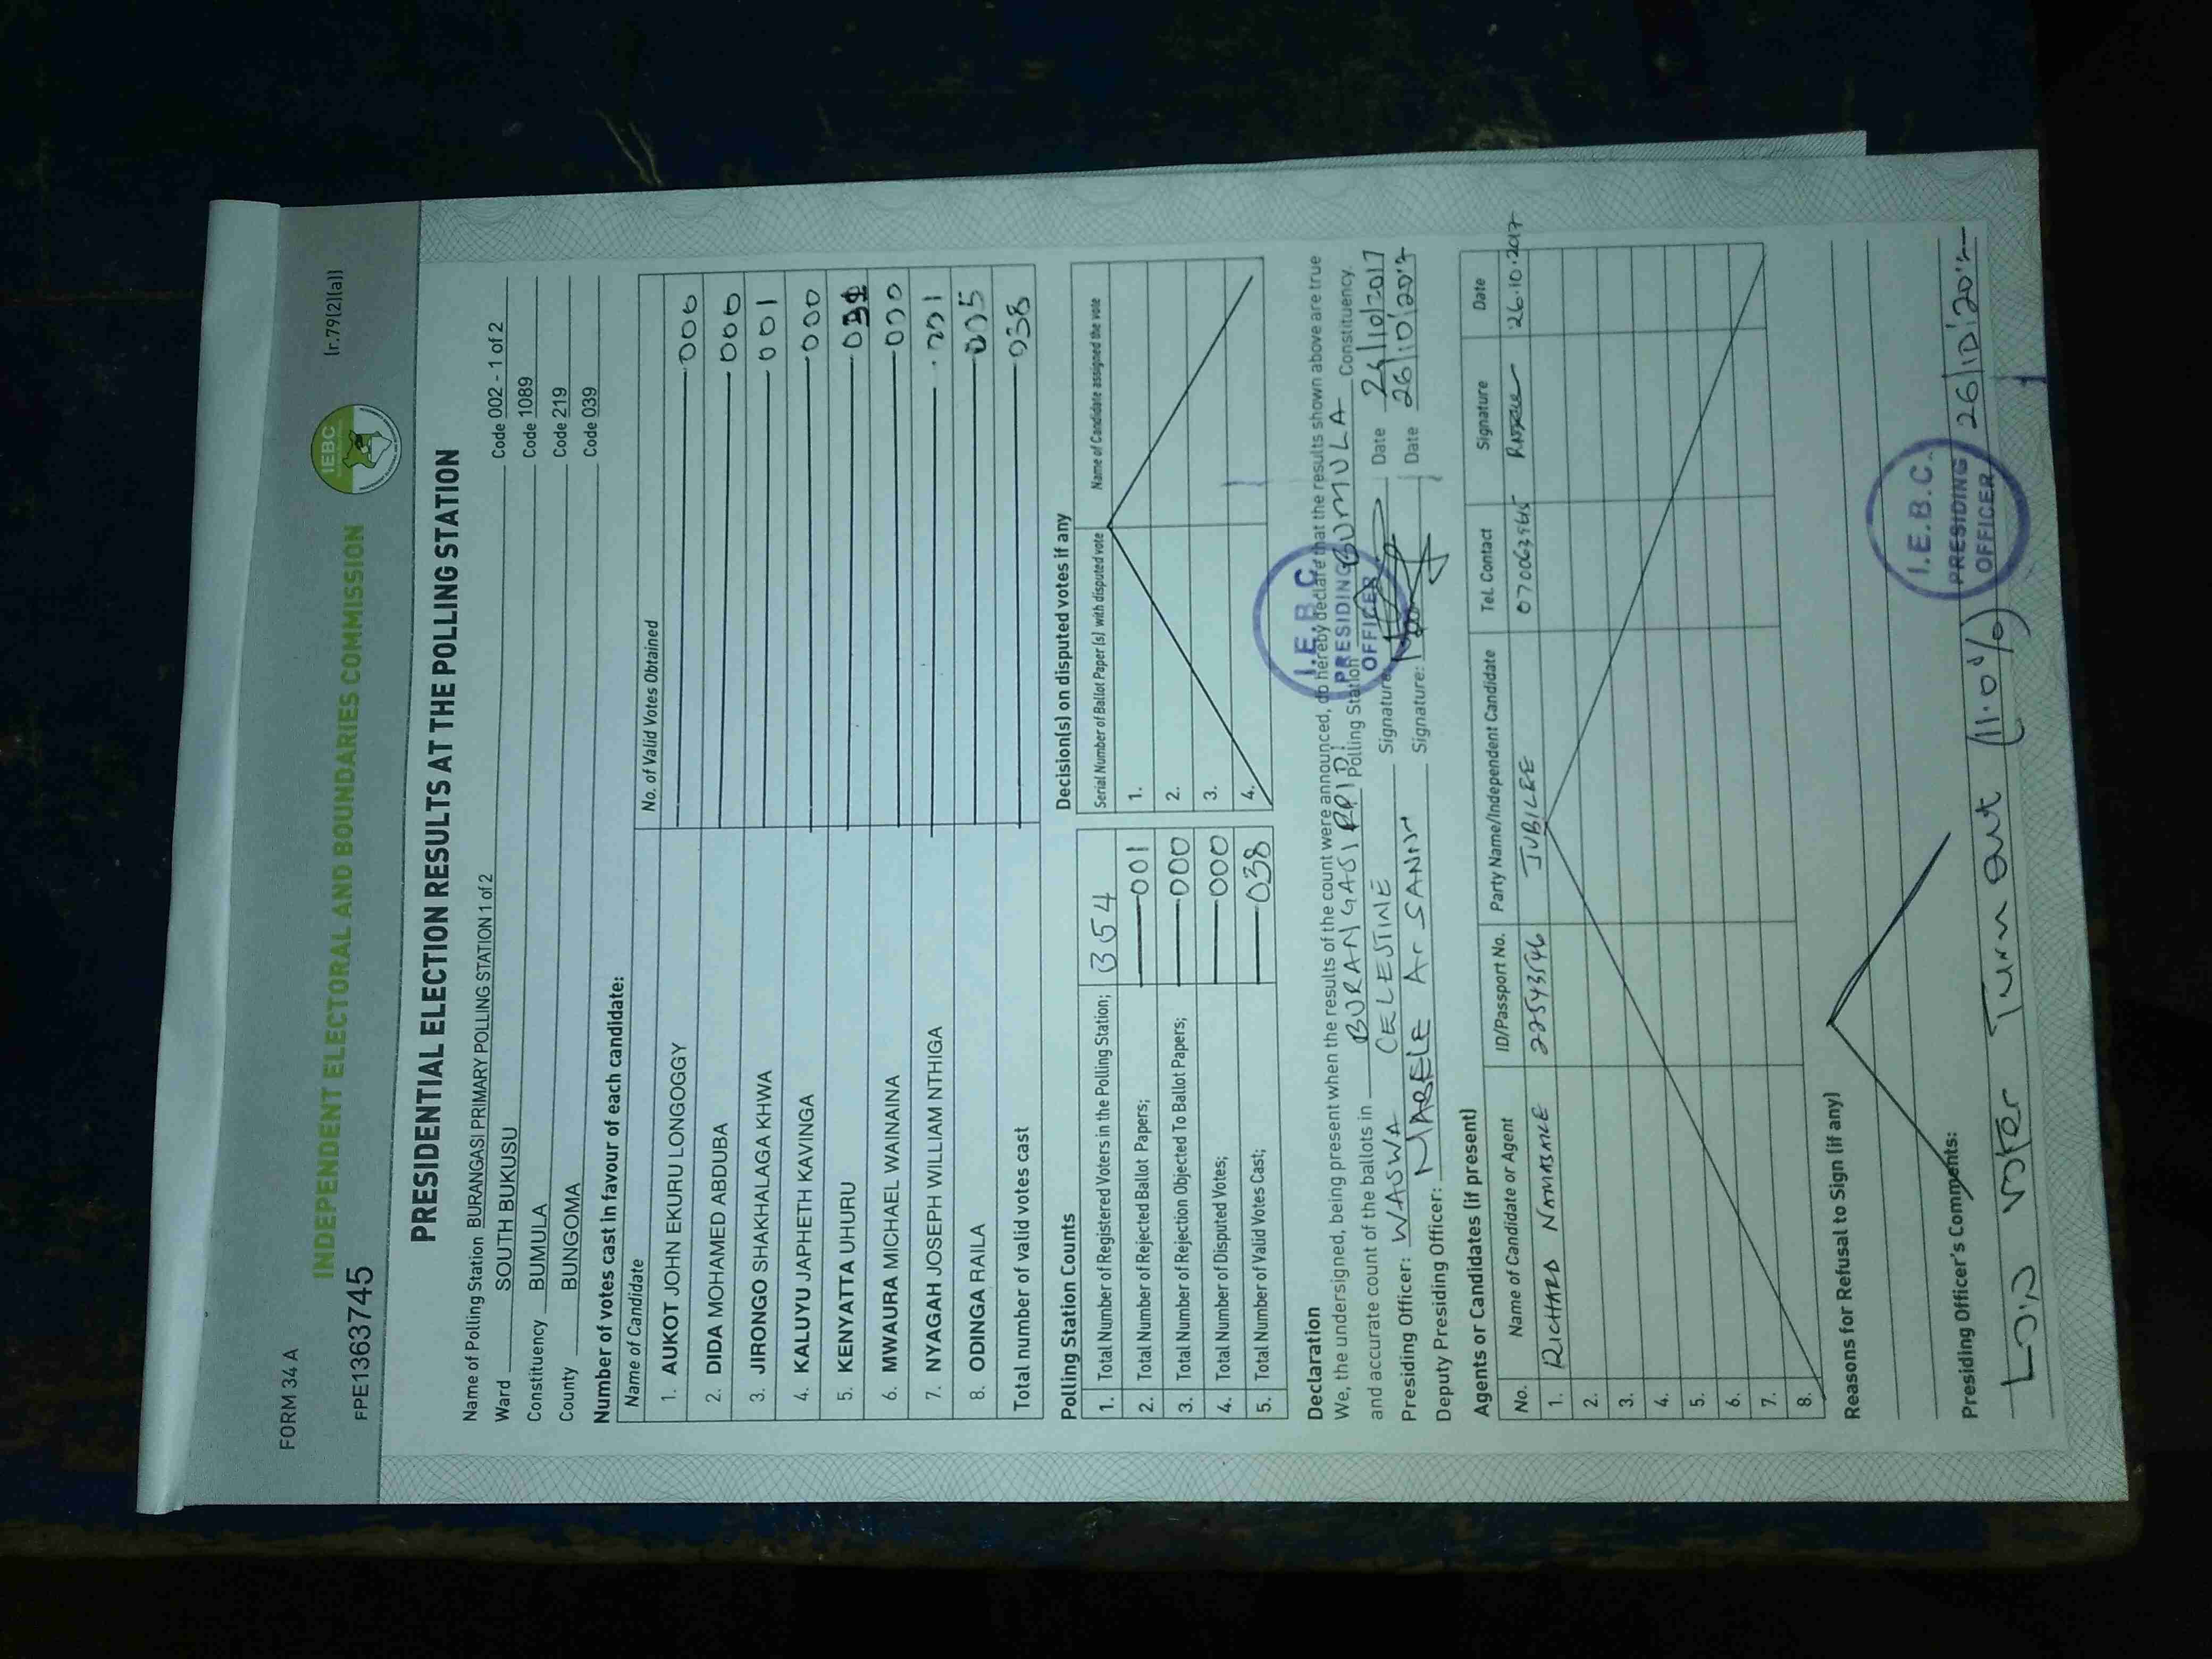 FORM 34 A
(r.79(2)(a))
INDEPENDENT ELECTORAL AND BOUNDARIES COMMISSION
IEBC
FPE1363745
PRESIDENTIAL ELECTION RESULTS AT THE POLLING STATION
Name of Polling Station BURANGASI PRIMARY POLLING STATION 1 of 2 Code 002 - 1 of 2
Ward SOUTH BUKUSU Code 1089
Constituency BUMULA Code 219
County BUNGOMA Code 039
Number of votes cast in favour of each candidate:
Name of Candidate No. of Valid Votes Obtained
1. AUKOT JOHN EKURU LONGOGGY 000
2. DIDA MOHAMED ABDUBA 000
3. JIRONGO SHAKHALAGA KHWA 001
4. KALUYU JAPHETH KAVINGA 000
5. KENYATTA UHURU
6. MWAURA MICHAEL WAINAINA 000
7. NYAGAH JOSEPH WILLIAM NTHIGA 001
8. ODINGA RAILA 005
Total number of valid votes cast 038
Polling Station Counts
1. Total Number of Registered Voters in the Polling Station; 354
2. Total Number of Rejected Ballot Papers; 001
3. Total Number of Rejection Objected To Ballot Papers; 000
4. Total Number of Disputed Votes; 000
5. Total Number of Valid Votes Cast; 038
Decision(s) on disputed votes if any
Serial Number of Ballot Paper (s) with disputed vote Name of Candidate assigned the vote
1.
2.
3.
4.
Declaration
We, the undersigned, being present when the results of the count were announced, do hereby declare that the results shown above are true
and accurate count of the ballots in BURANGASI PRI Polling Station BUMULA Constituency.
Presiding Officer: WASWA CELESTINE Signature: Date 26/10/2017
Deputy Presiding Officer: Signature: Date 26/10/2017
I.E.B.C.
PRESIDING
OFFICER
Agents or Candidates (if present)
No. Name of Candidate or Agent ID/Passport No. Party Name/Independent Candidate Tel. Contact Signature Date
1. RICHARD 22543546 JUBILEE 26.10.2017
2.
3.
4.
5.
6.
7.
8.
Reasons for Refusal to Sign (if any)
Presiding Officer's Comments:
Low voter Turn out (11.0%) 26/10/2017
I.E.B.C.
PRESIDING
OFFICER